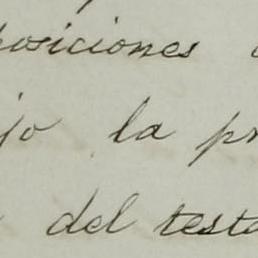 posiciones
jo la pr
del testa